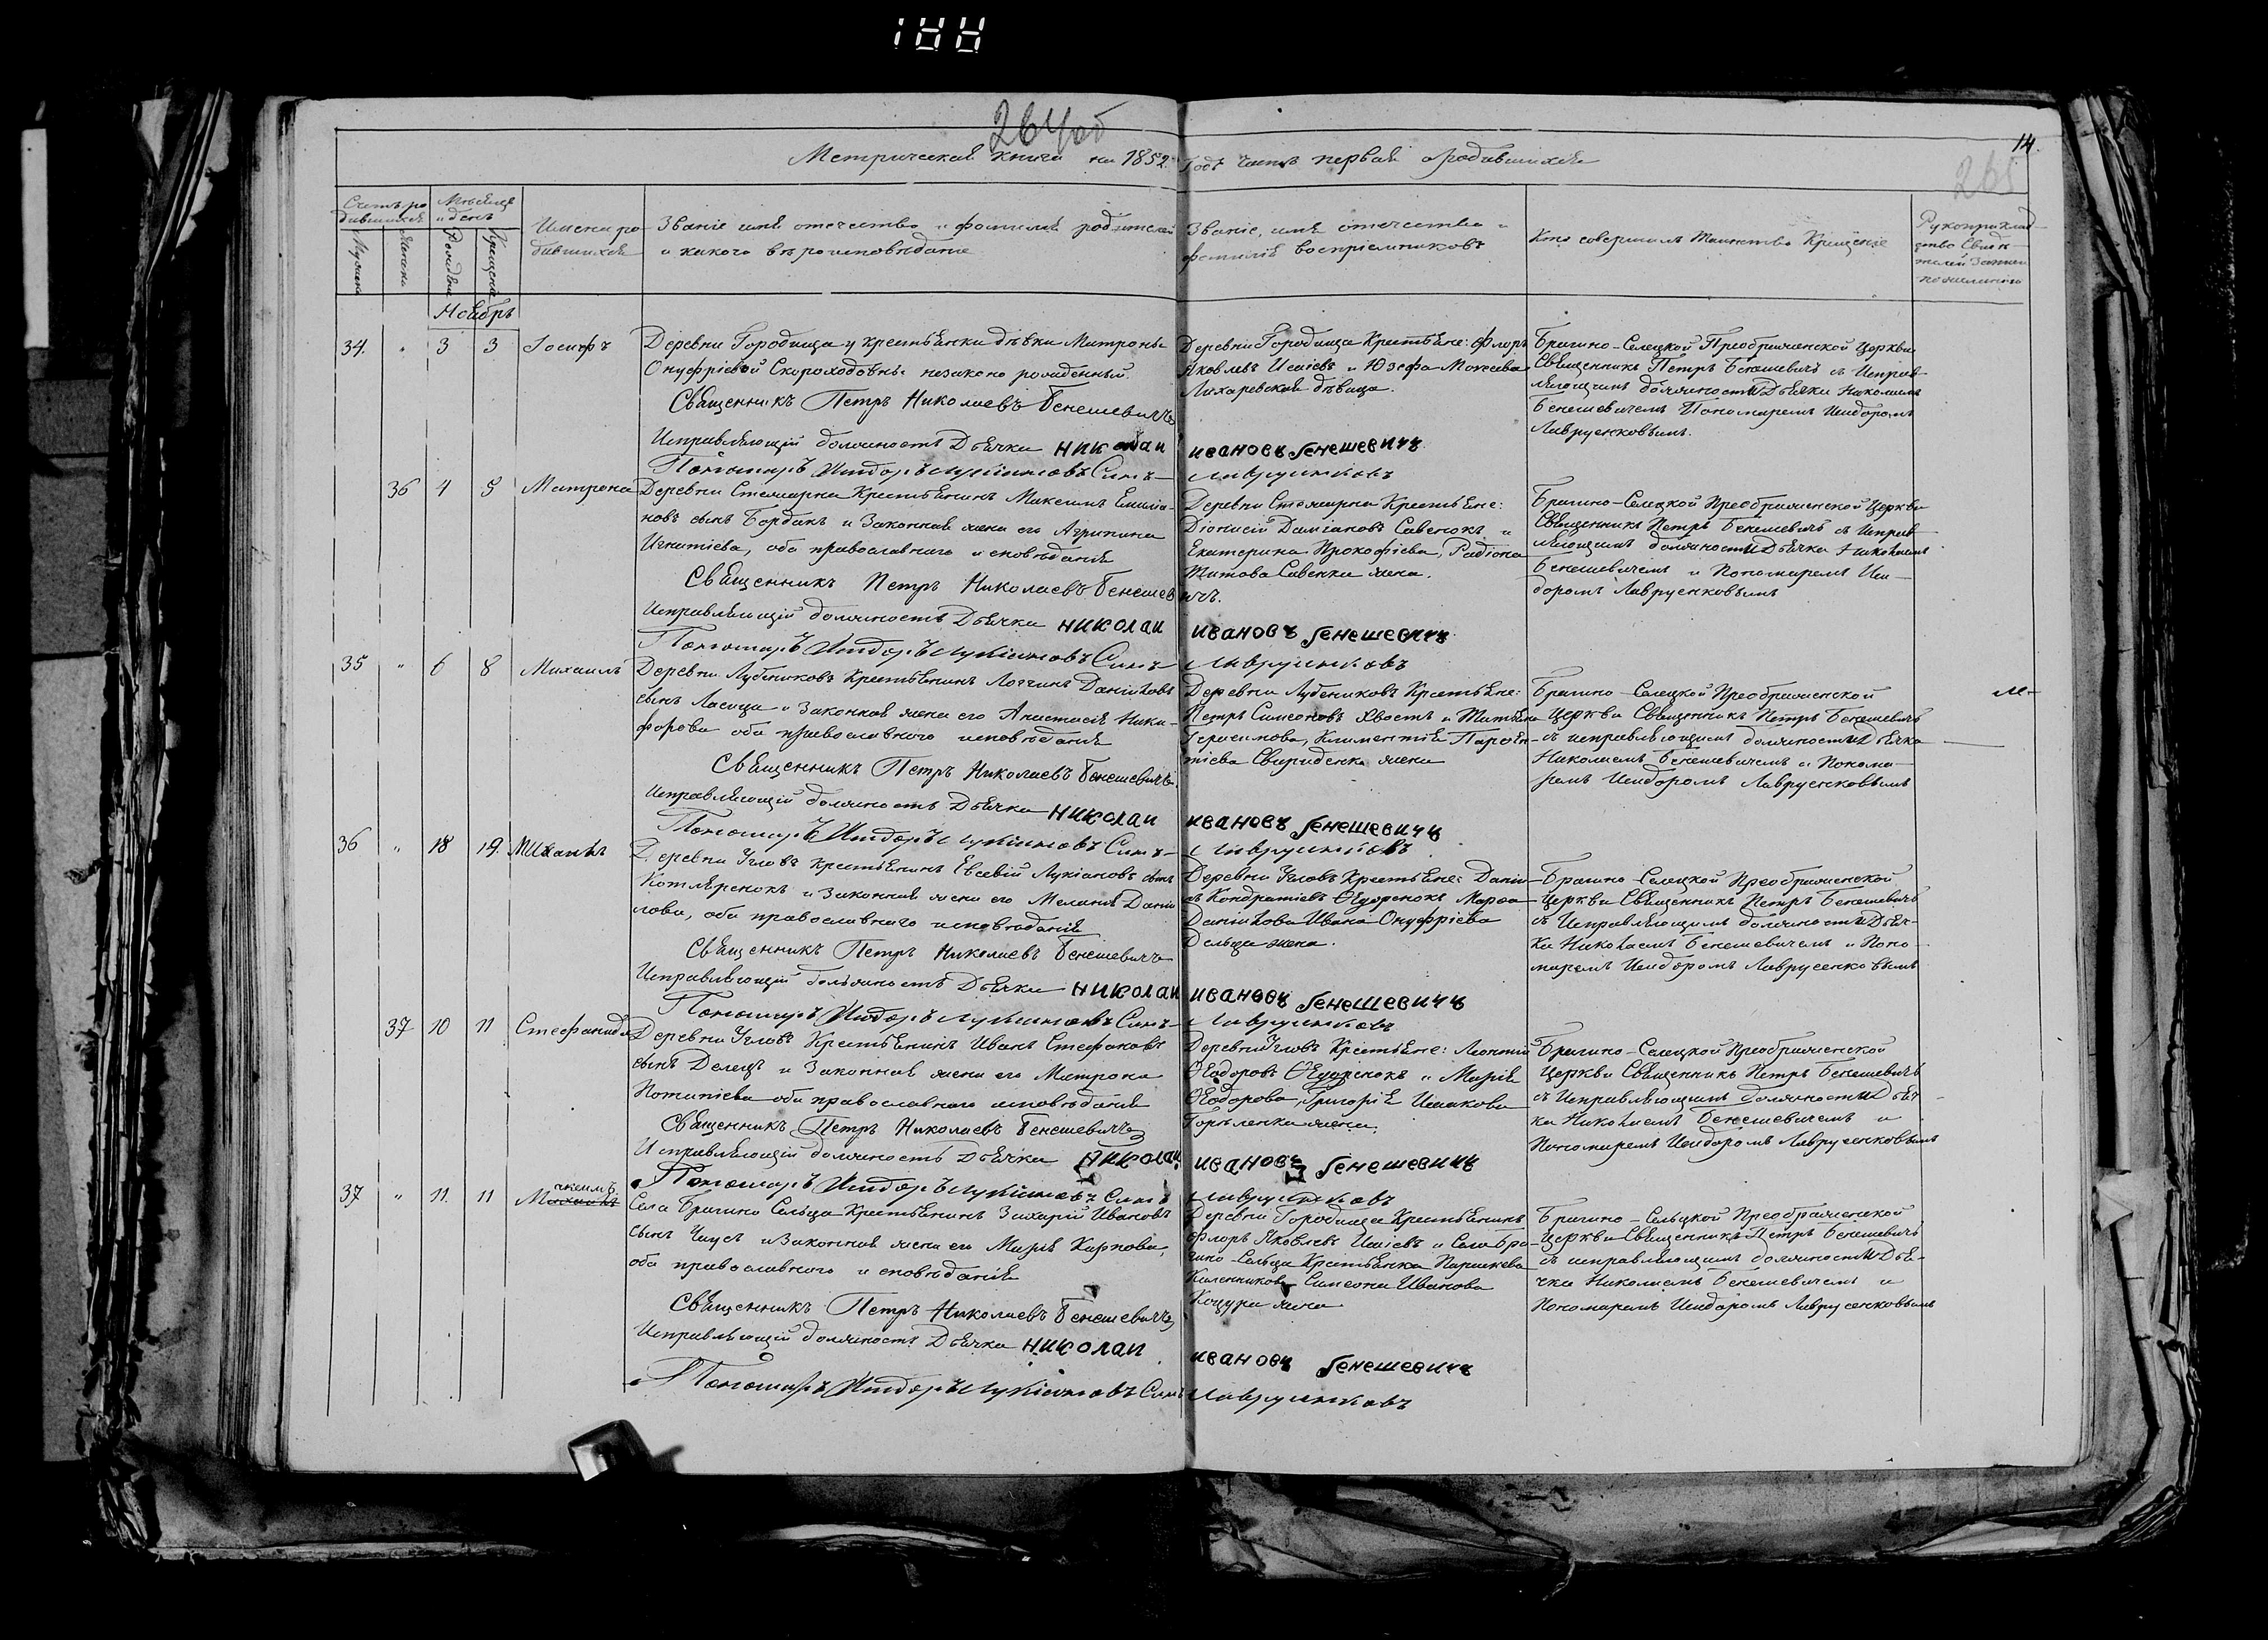 144
264об
14.
265
Метрическая книга на 1852. Годъ часть первая о родившихся
Счетъ ро
дившихся
Мужеска
Женска
Мѣсяцъ
и день
Рожденія
Крещенія
Имена ро
дившихся
Званіе имя отечество и фамилія родителей
и какого вѣроисповѣданія
Званіе, имя отечество и
фамилія воспріемниковъ
Кто совершалъ таинство Крещенія
Рукоприклад-
ство Свидѣ-
телей записи
по желанію
Ноябрь
34. " 3 3 Іосифъ
Деревни Городища у крестьянки дѣвки Матроны
Онуфріевой Скороходовны незаконо рожденный.
Священникъ Петръ Николаевъ Бенешевичъ
Исправляющій должность Дьячка Николаи
Пономарь Исидоръ Лукіановъ Сынъ
Деревни Городища Крестьяне: Флоръ
Яковлевъ Исаіевъ и Юзефа Моисеева
Лихаревская дѣвица.
ивановъ бенешевичъ
Лаврусенковъ
Брагино-Селецкой Преображенской церкви
Священникъ Петръ Бенешевичъ съ Исправ-
ляющимъ должность Дьячка Николаемъ
Бенешевичемъ Пономаремъ Исидоромъ
Лаврусенковымъ.
36 4 5 Матрона
Деревни Стежарна Крестьянинъ Максимъ Емилія-
новъ сынъ Бордакъ и Законная жена его Агрипина
Игнатіева, оба православнаго исповѣданія
Священникъ Петръ Николаевъ Бенешев
Исправляющій должность Дьячка николаи
Пономарь Исидоръ Лукіановъ Сынъ
Деревни Стежарна Крестьяне:
Діонисій Даміановъ Савенокъ и
Екатерина Прокофіева, Радіона
Титова Савенка жена.
ичъ.
ивановъ бенешевичъ
Лаврусенковъ
Брагино-Селецкой Преображенской Церкви
Священникъ Петръ Бенешевичъ съ Исправ
ляющимъ должность Дьячка Николаемъ
Бенешевичемъ и Пономаремъ Иси-
доромъ Лаврусенковымъ
35 " 6 8 Михаилъ
Деревни Лубениковъ Крестьянинъ Логгинъ Даніиловъ
сынъ Ласица и Законная жена его Анастасія Ники-
форова оба православнаго исповѣданія
Священникъ Петръ Николаевъ Бенешевичъ.
Исправляющій должность Дьячка Николаи
Пономарь Исидоръ Лукіановъ Сынъ
Деревни Лубениковъ Крестьяне:
Петръ Симеоновъ Хвостъ и Татьяна
Герасимова, Климентія Парѳен-
тіева Свириденка жена
ивановъ бенешевичъ
Лаврусенковъ
Брагино-Селецкой Преображенской
Церкви Священникъ Петръ Бенешевичъ
съ исправляющимъ должность Дьячка
Николаемъ Бенешевичемъ и Понома-
ремъ Исидоромъ Лаврусенковымъ
36 " 18 19. Михаилъ
Деревни Угловъ крестьянинъ Евсевій Лукіановъ сынъ
Котляренокъ и Законная жена его Меланія Даніи
лова, оба православнаго исповѣданія
Священникъ Петръ Николаевъ Бенешевичъ
Исправляющій должность Дьячка николаи
Пономарь Исидоръ Лукіановъ Сынъ
Деревни Угловъ Крестьяне: Даніи-
лъ Кондратіевъ Ѳедоренокъ Марѳа
Даніилова Ивана Онуфріева
Дельца жена.
ивановъ бенешевичъ
Лаврусенковъ
Брагино-Селецкой Преображенской
Церкви Священникъ Петръ Бенешевичъ
съ Исправляющимъ должность Дьяч-
ка Николаемъ Бенешевичемъ и Поно-
маремъ Исидоромъ Лаврусенковымъ
37 10 11 Стефанида
Деревни Угловъ Крестьянинъ Иванъ Стефановъ
сынъ Делецъ и Законная жена его Матрона
Потапіева оба православнаго исповѣданія
Священникъ Петръ Николаевъ Бенешевичъ
Исправляющій должность Дьячка николаи
Пономарь Исидоръ Лукіановъ Сынъ
Деревни Угловъ Крестьяне: Леонтій
Ѳеодоровъ Ѳедоренокъ и Марія
Ѳеодорова, Григорія Исаакова
Горѣленка жена.
ивановъ бенешевичъ
Лаврусенковъ
Брагино-Селецкой Преображенской
Церкви Священникъ Петръ Бенешевичъ
съ Исправляющимъ должность Дьяч
ка Николаемъ Бенешевичемъ и
Пономаремъ Исидоромъ Лаврусенковымъ
37 " 11. 11
Села Брагино Сельца Крестьянинъ Захарій Ивановъ
сынъ Чаусъ и Законная жена его Марія Карпова,
оба православнаго исповѣданія
Священникъ Петръ Николаевъ Бенешевичъ
Исправляющій должность Дьячка николаи
Пономарь Исидоръ Лукіановъ Сынъ
Деревни Городища Крестьянинъ
Флоръ Яковлевъ Исаіевъ и Села Бра-
гино-Сельца Крестьянка Параскева
Симеона Иванова
Коцура жена
ивановъ бенешевичъ
Лаврусенковъ
Брагино-Сельцкой Преображенской
Церкви Священникъ Петръ Бенешевичъ
съ исправляющимъ должность Дья-
чка Николаемъ Бенешевичемъ и
Пономаремъ Исидоромъ Лаврусенковымъ